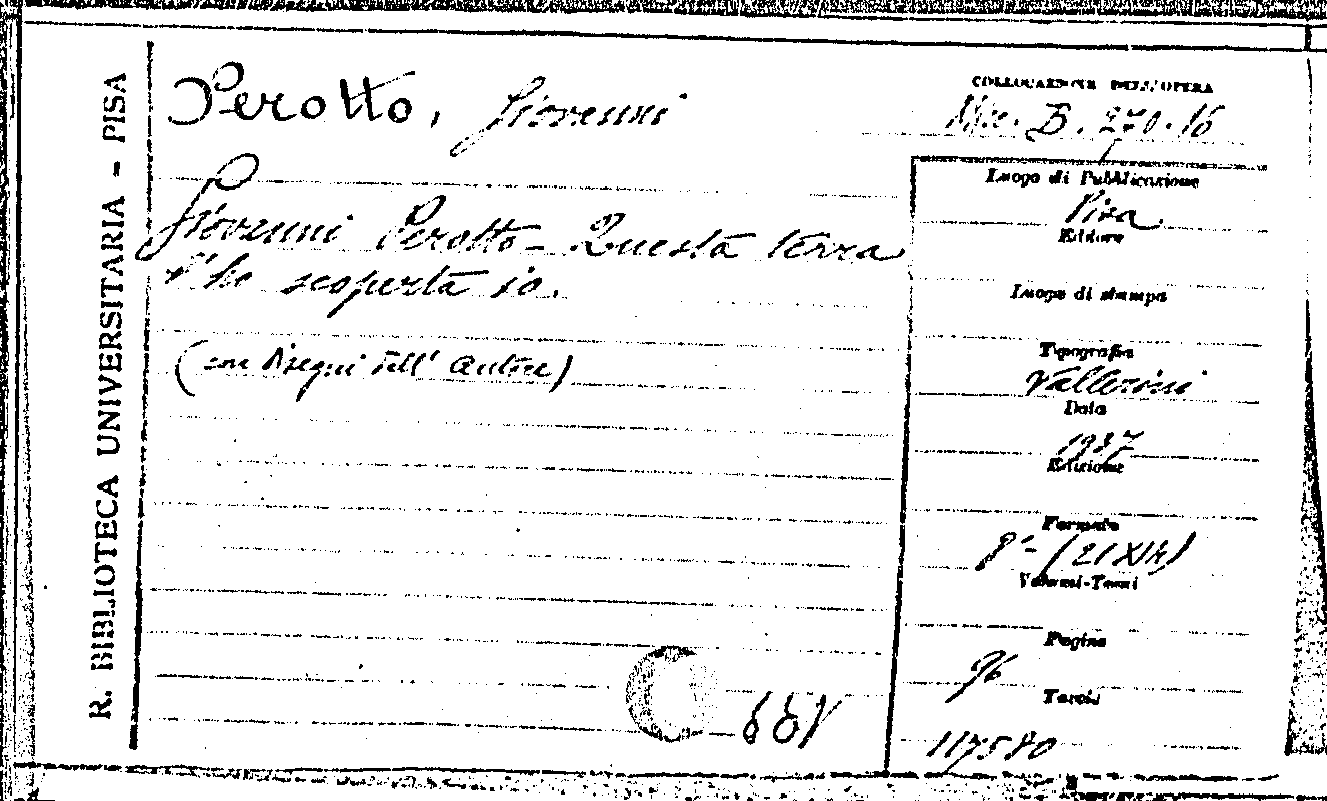 R. BIBLIOTECA UNIVERSITARIA - PISA
Perotto, Giovanni
COLLOCAZIONE DELL'OPERA
Misc. B. 270. 16
Giovanni Perotto - Questa terra
l'ho scoperta io.
(con disegni dell' autore)
Luogo di Pubblicazione
Pisa
Editore
Luogo di stampa
Tipografia
Vallerini
Data
1937
Edizione
Formato
8°- (21X14)
Volumi-Tomi
Pagine
96
Tavole
117580